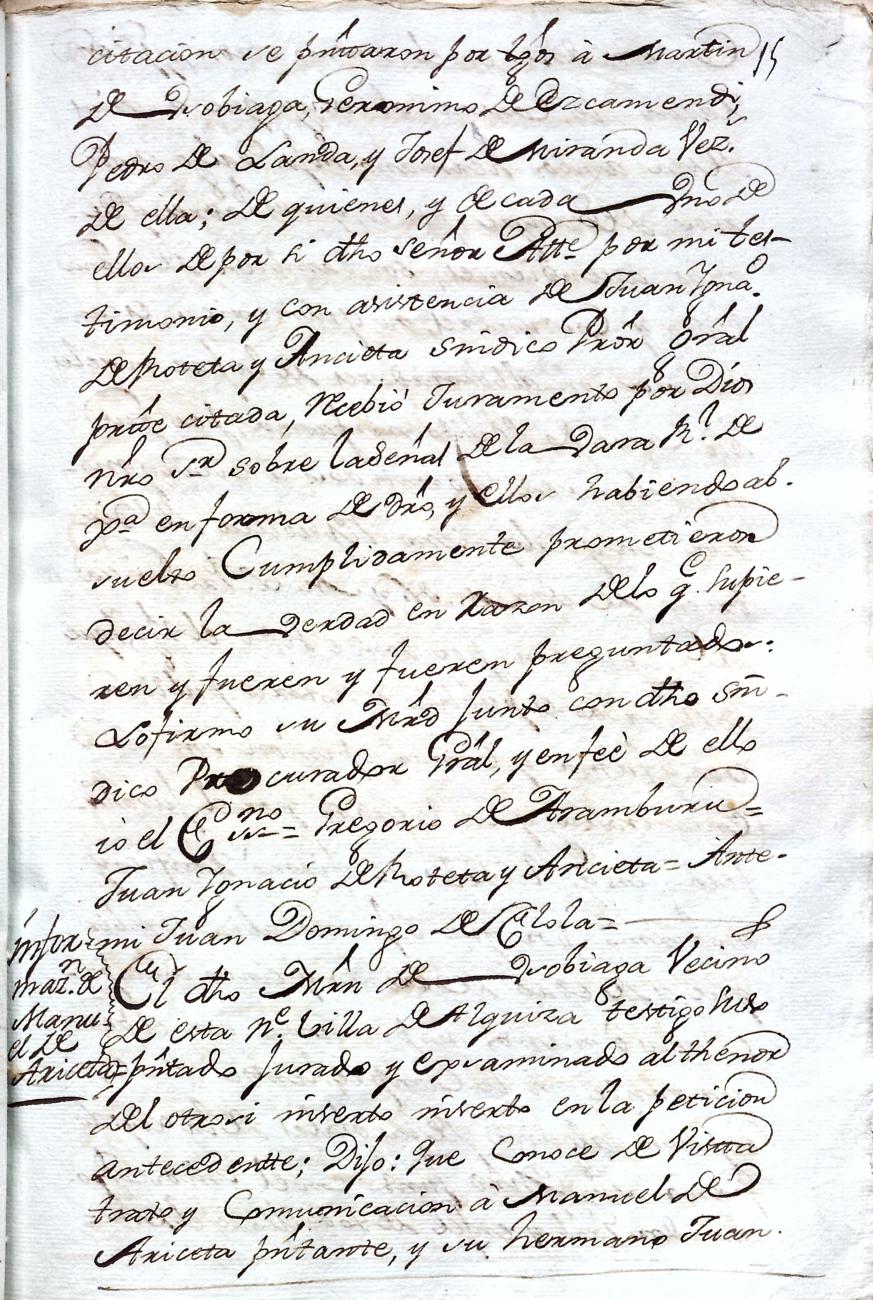 citacion se pntaron por tgos à Martin
15
de Usobiaga, Geronimo de Ezcamendi,
Pedro de Landa, y Josef de Miranda Vez.s
de ella; de quienes, y de cada Uno de
ellos de por si dho señor Altte por mi tes-
timonio, y con asistencia de Juan Ygna.o
de Roteta y Ancieta sindico Pror Gral
prnte citada, recebió Juramento por Dios
nro Sr sobre la señal de la Vara Rl. de
xpa en forma de dro, y ellos habiendo ab-
suelto Cumplidamente prometieron
decir la Verdad en razon delo q.e supie-
ren y fueren y fueren preguntados:
Lo firmo su Mrd junto con dho sin-
dico Procurador Gral, y en feè de ello
io el Essno = Gregorio de Aramburu =
Juan Ygnacio de Roteta y Ancieta = Ante-
mi Juan Domingo de Elola =
Infor-
maz.n de
Manu-
el de
Ariceta
El dho Mrn de Usobiaga Vecino
de esta N.e Villa de Alquiza testigo suso
pntado Jurado y examinado al thenor
del otrosi inserto inserto en la peticion
antecedentte; Dijo: que Conoce de Vistta
trato y Comunicacion à Manuel de
Ariceta pntante, y su hermano Juan